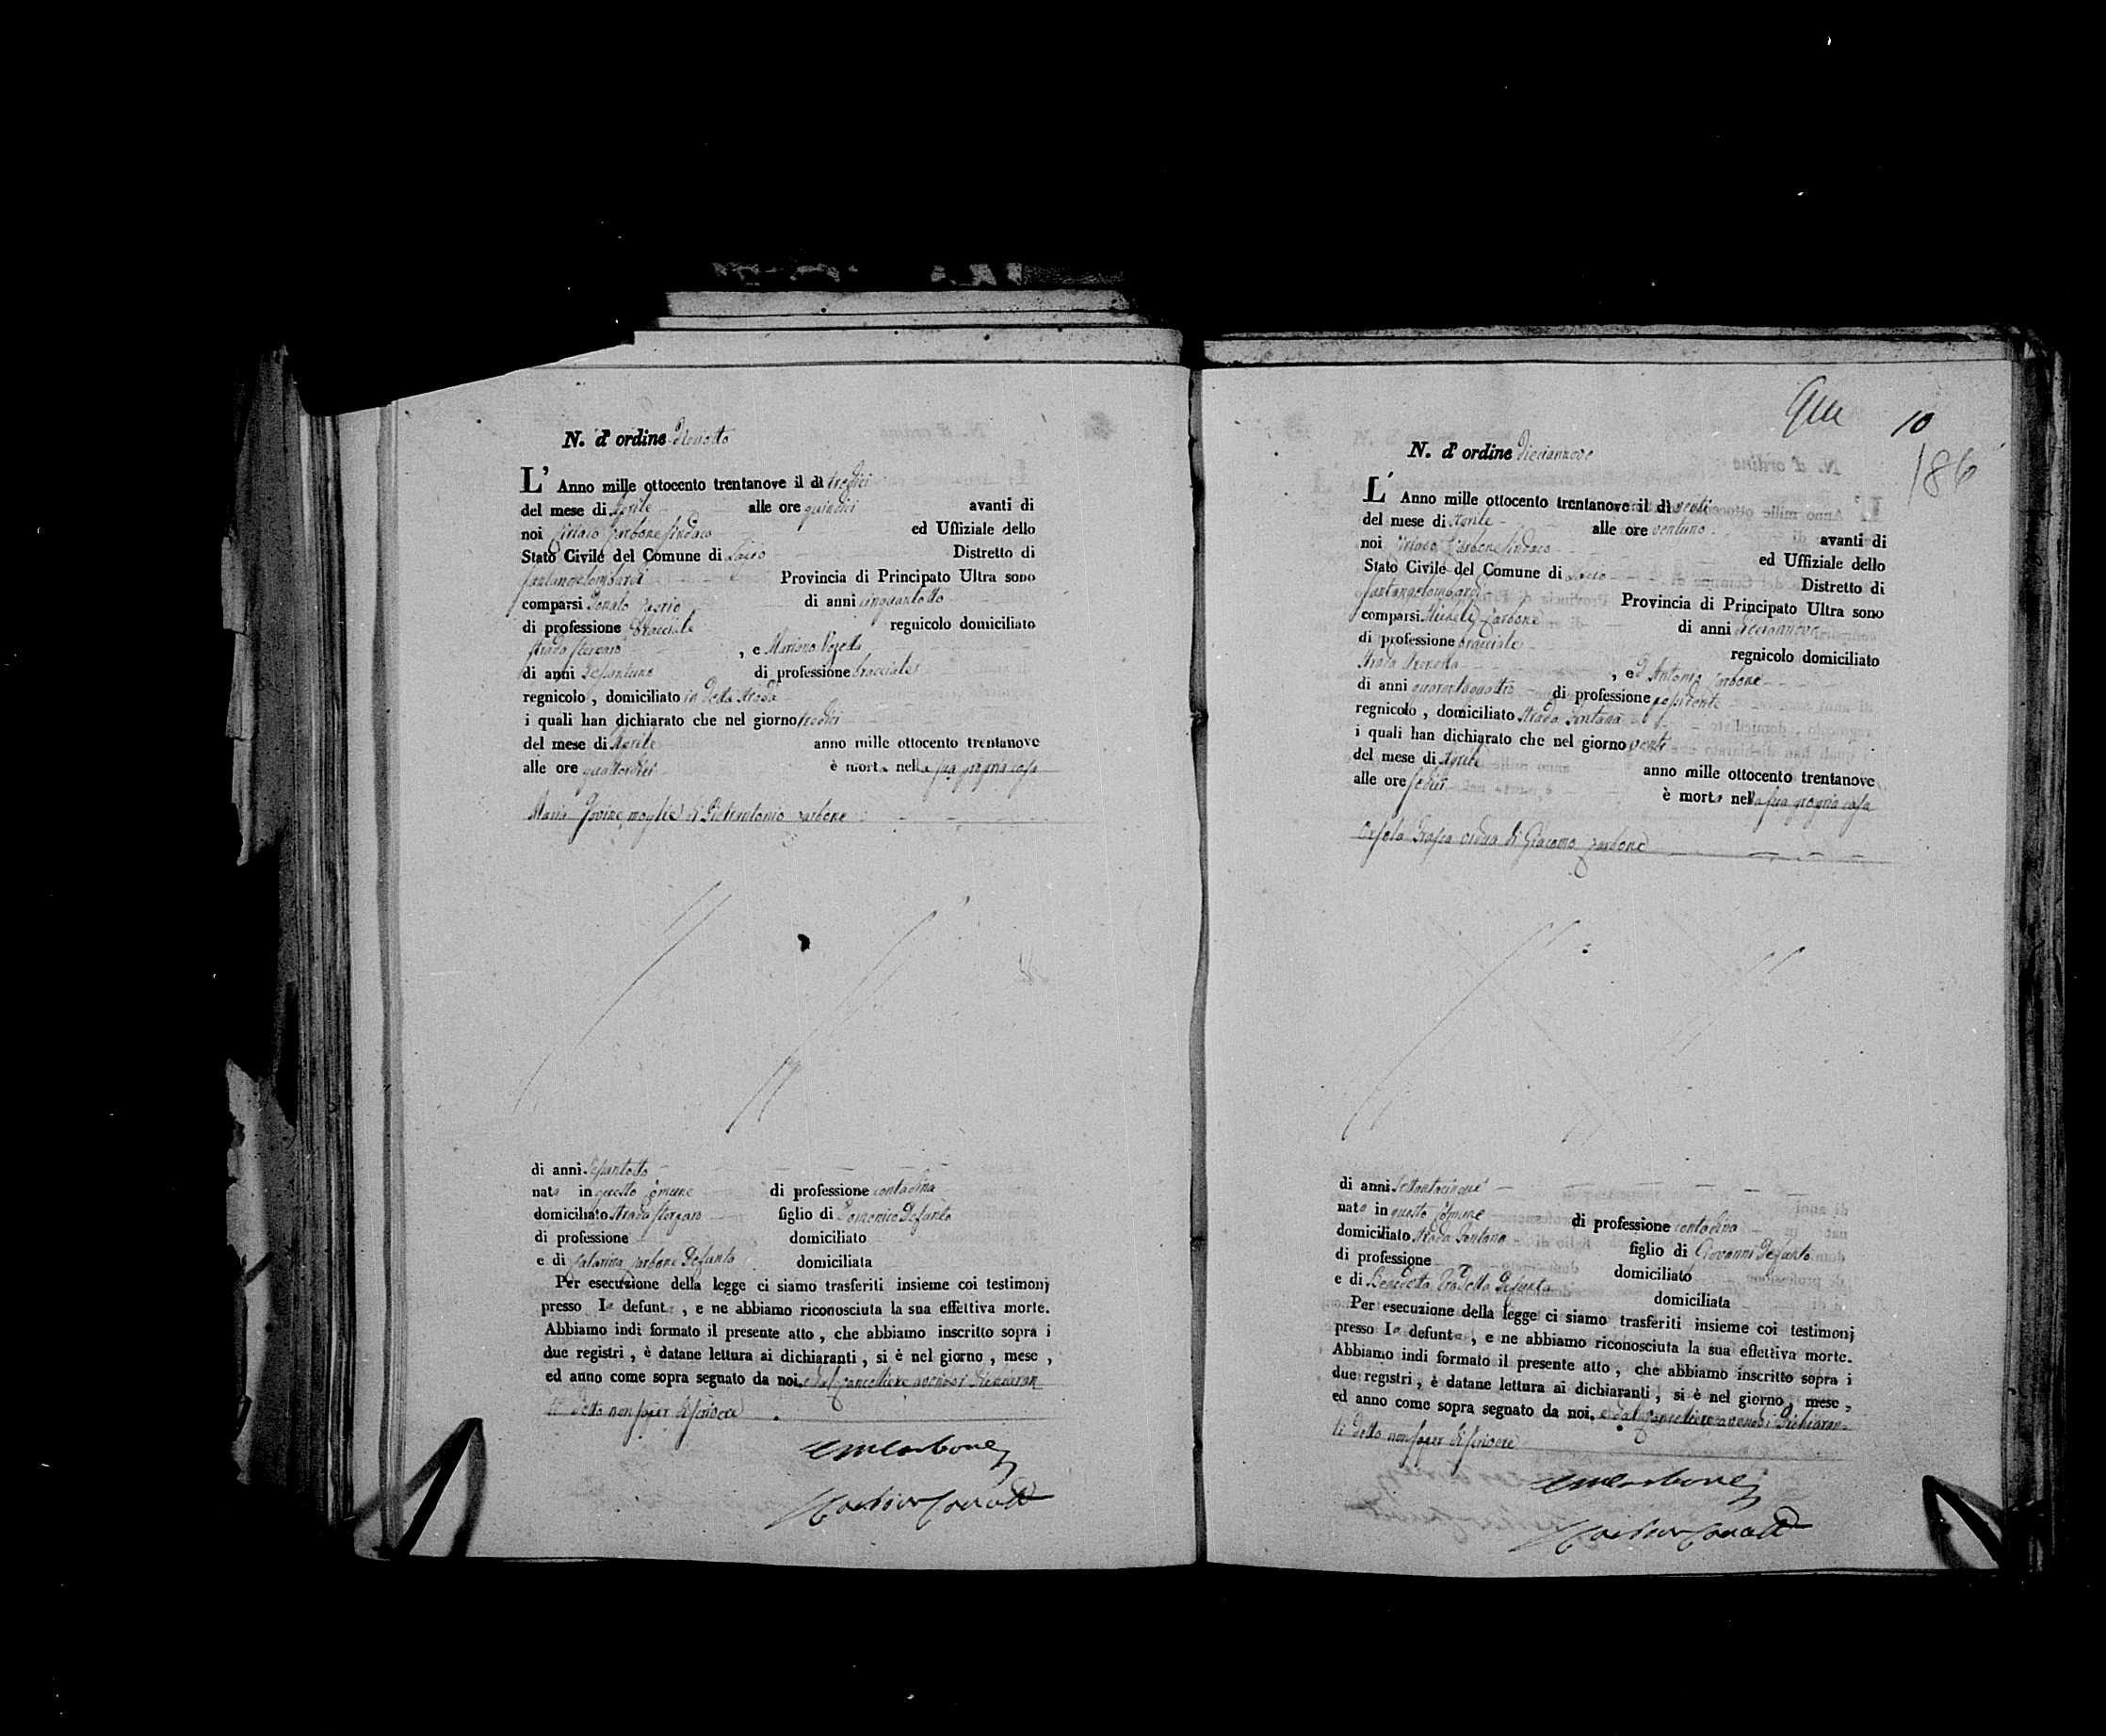 N. d' ordine Dieciotto
L' Anno mille ottocento trentanove il dì tredici
del mese di Aprile alle ore quindici avanti di
noi Ciriaco Carbone Sindaco ed Uffiziale dello
Stato Civile del Comune di Distretto di
Santangelombardi Provincia di Principato Ultra sono
comparsi Donato di anni cinquantotto
di professione bracciale regnicolo domiciliato
Strada , e Mariano
di anni Sessantuno di professione bracciale
regnicolo , domiciliato in detta strada
i quali han dichiarato che nel giorno tredici
del mese di Aprile anno mille ottocento trentanove
alle ore quattordici è morta nella sua propria casa
Maria Iovine moglie di Pietrantonio Carbone
di anni Sessantotto
nata in questo Comune di professione contadina
domiciliato Strada figlio di Domenico Defunto
di professione domiciliato
e di Catarina Carbone Defunta domiciliata
Per esecuzione della legge ci siamo trasferiti insieme coi testimonj
presso la defunta , e ne abbiamo riconosciuta la sua effettiva morte.
Abbiamo indi formato il presente atto , che abbiamo inscritto sopra i
due registri , è datane lettura ai dichiaranti , si è nel giorno , mese ,
ed anno come sopra segnato da noi, e dal Cancelliere avendo i dichiaran
ti detto non saper di scrivere
Carbone
10
186
N. d' ordine Diecianove
L' Anno mille ottocento trentanove il dì venti
del mese di Aprile alle ore ventuno avanti di
noi Ciriaco Carbone Sindaco ed Uffiziale dello
Stato Civile del Comune di Distretto di
Santangelombardi Provincia di Principato Ultra sono
comparsi Michele Carbone di anni Diecianove
di professione bracciale regnicolo domiciliato
Strada , e D. Antonio Carbone
di anni quarantaquattro di professione possidente
regnicolo , domiciliato Strada Fontana
i quali han dichiarato che nel giorno venti
del mese di Aprile anno mille ottocento trentanove
alle ore sedici è morta nella sua propria casa
Orsola Grassa vedua di Giacomo Carbone
di anni Settantacinque
nata in questo Comune di professione contadina
domiciliato Strada Fontana figlio di Giovanni Defunto
di professione domiciliato
e di Benedetta Defunta domiciliata
Per esecuzione della legge ci siamo trasferiti insieme coi testimonj
presso la defunta , e ne abbiamo riconosciuta la sua effettiva morte.
Abbiamo indi formato il presente atto , che abbiamo inscritto sopra i
due registri , è datane lettura ai dichiaranti , si è nel giorno , mese ,
ed anno come sopra segnato da noi, e dal Cancelliere avendo i Dichiaran-
ti detto non saper di scrivere
Carbone